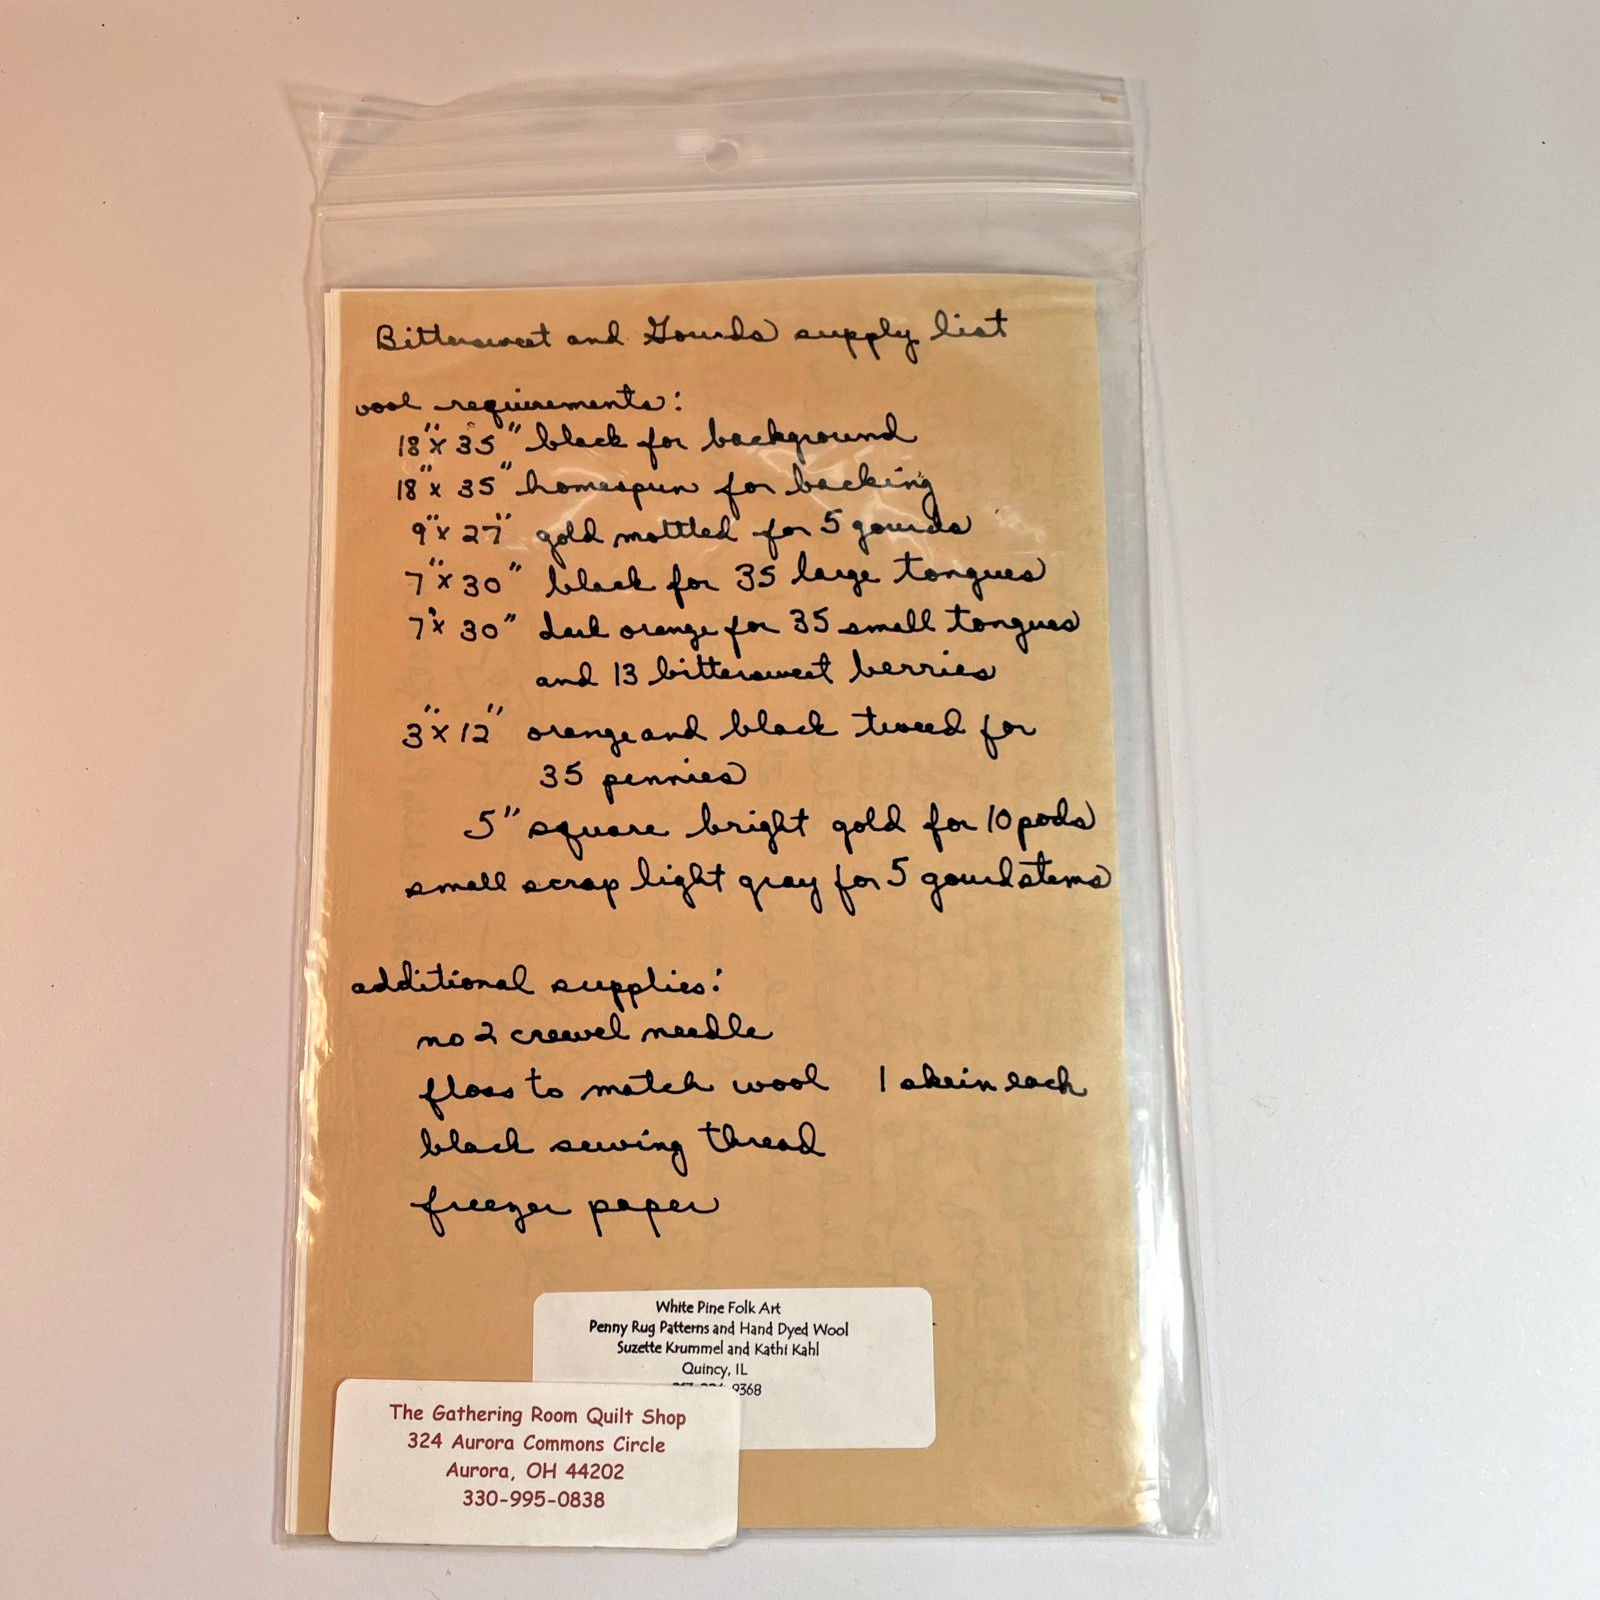 Bittersweet and Gourds supply list
wool requirements:
18" x 35" black for background
18" x 35" homespun for backing
9" x 27" gold mottled for 5 gourds
7" x 30" black for 35 large tongues
7" x 30" dark orange for 35 small tongues
and 13 bittersweet berries
3" x 12" orange and black tweed for
35 pennies
5" square bright gold for 10 pods
small scrap light gray for 5 gourd stems
additional supplies:
no 2 crewel needle
floss to match wool 1 skein each
black sewing thread
freezer paper
White Pine Folk Art
Penny Rug Patterns and Hand Dyed Wool
Suzette Krummel and Kathi Kahl
Quincy, IL
9368
The Gathering Room Quilt Shop
324 Aurora Commons Circle
Aurora, OH 44202
330-995-0838